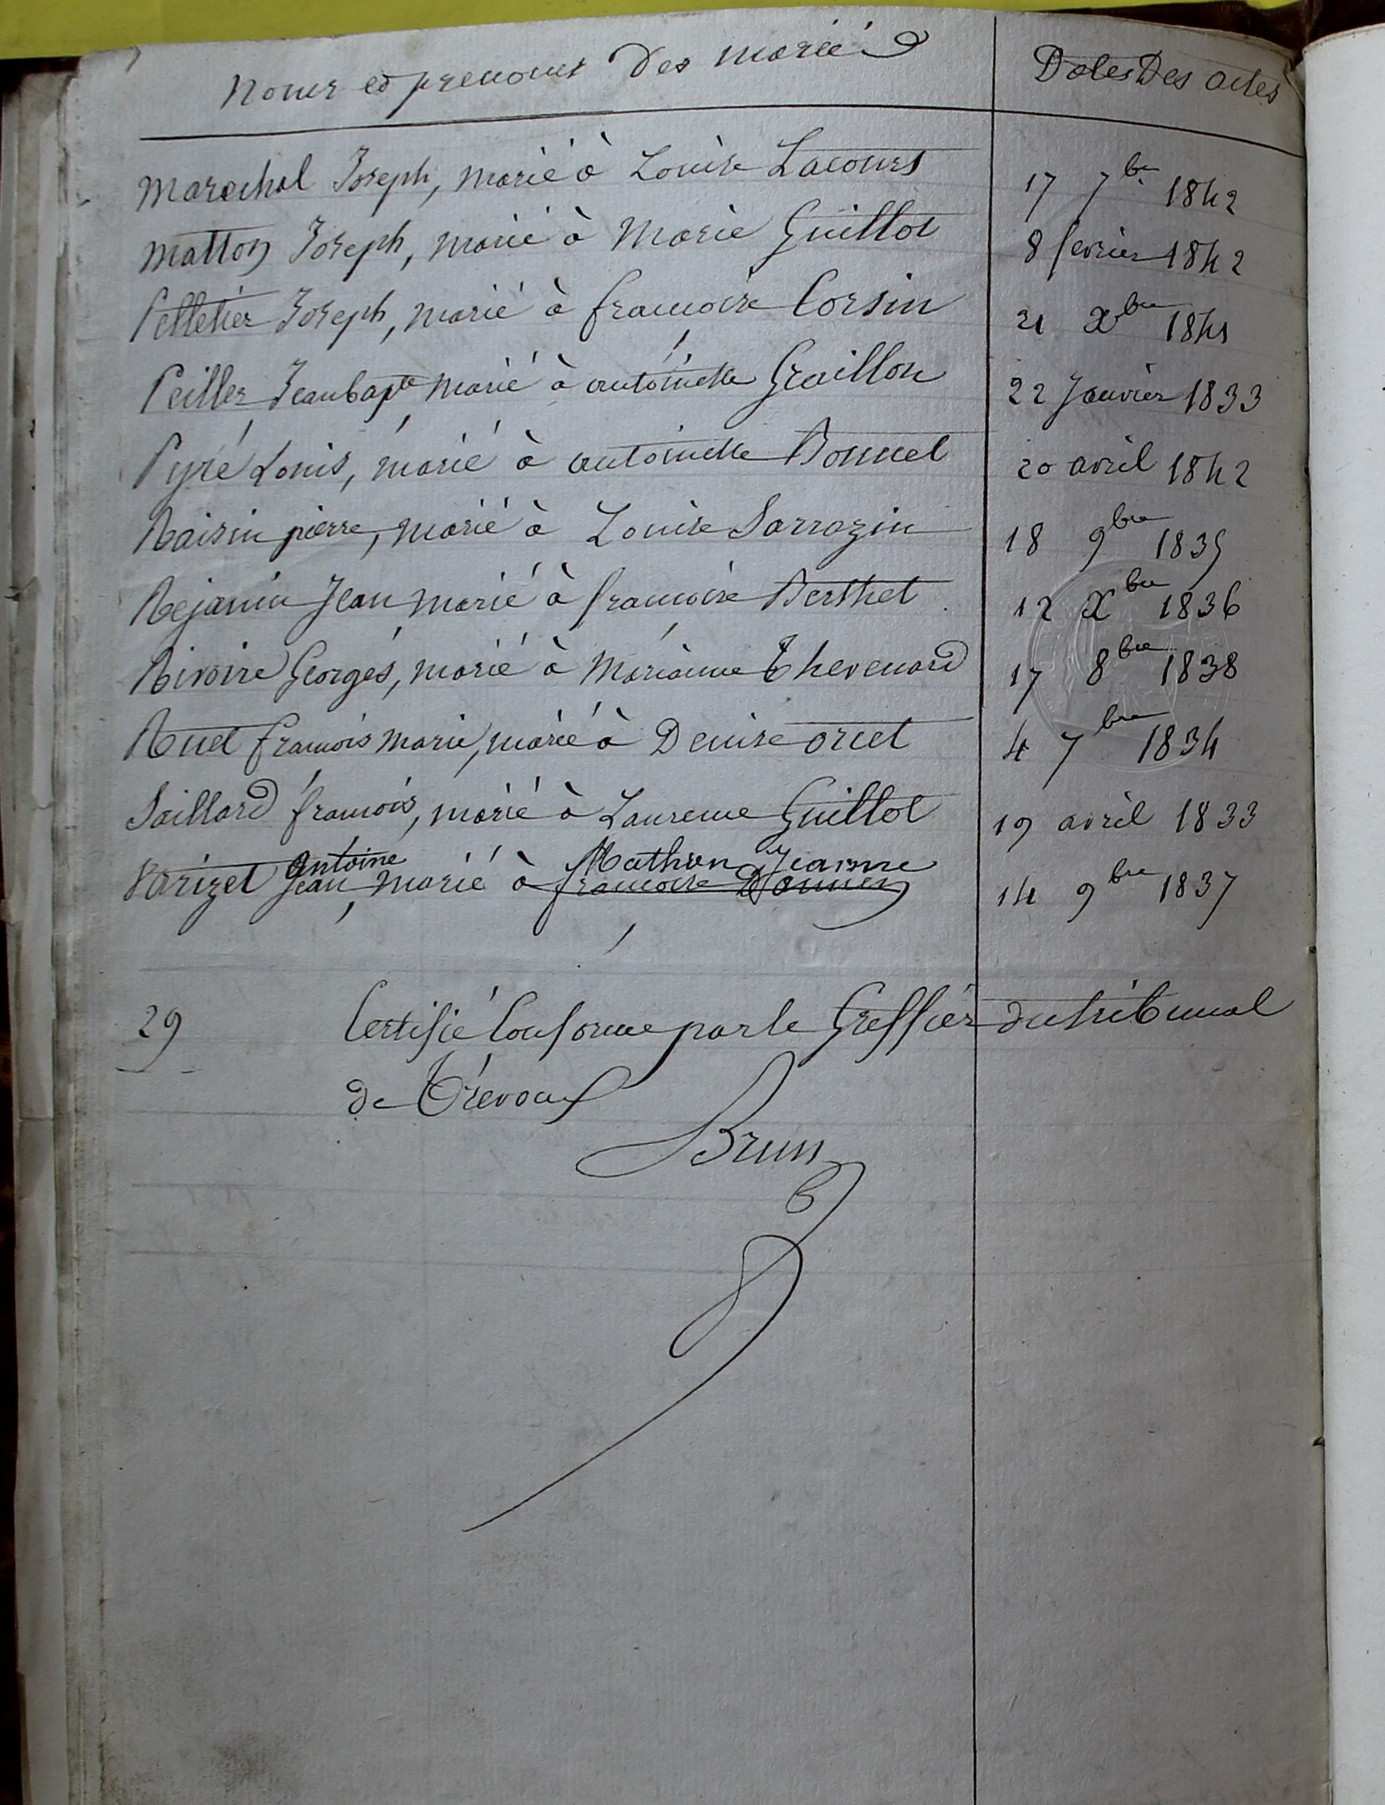 Noms et prenoms Des mariés Dates Des actes
Marechal Joseph, marié à Louise Lacours 17 7bre 1842
Matton Joseph, marié à Marie Guillot 8 fevrier 1842
Pelletier Joseph, marié à francoise Corsin 21 Xbre 1841
Peiller Jean bapte marié à antoinette Graillon 22 Janvier 1833
Pyré Louis, marié à antoinette Bonnet 20 avril 1842
Raisin pierre, marié à Louise Sarrazin 18 9bre 1835
Rejanin Jean marié à francoise Berthet 12 Xbre 1836
Rivoire Georges, marié à Marianne Thevenard 17 8bre 1838
Ruet francois marie, marié à Denise oruet 4 7bre 1834
Saillard francois, marié à Laurence Guillot 19 avril 1833
Antoine Mathieu Jeanne
Varizet Jean, marié à francoise 14 9bre 1837
29 Certifié Conforme par le Greffier du tribunal
de Trévoux
Brun